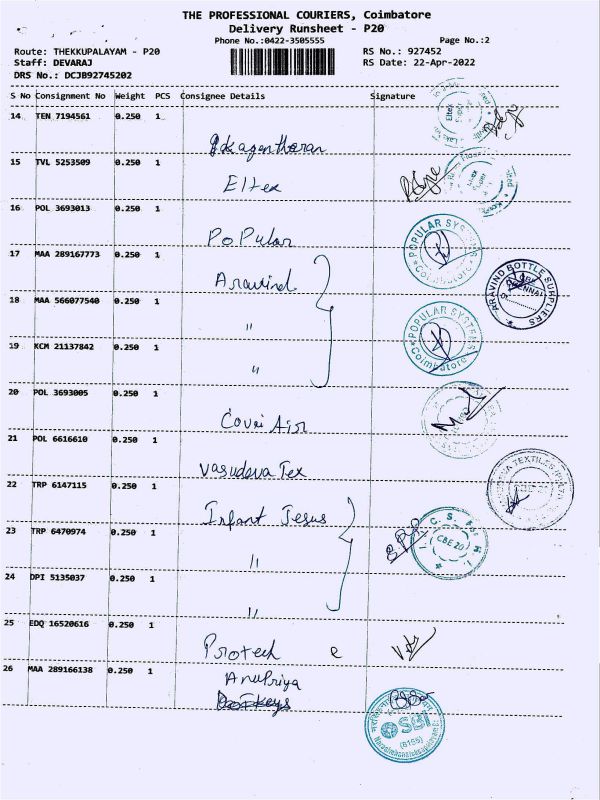 THE PROFESSIONAL COURIERS, Coimbatore
Delivery Runsheet - P20
Phone No.:0422-3505555 Page No.:2
Route: THEKKUPALAYAM - P20 RS No.: 927452
Staff: DEVARAJ RS Date: 22-Apr-2022
DRS No.: DCJB92745202
S No Consignment No Weight PCS Consignee Details Signature
14 TEN 7194561 0.250 1
15 TVL 5253509 0.250 1
Eltex
16 POL 3693013 0.250 1
Popular
POPULAR SYSTEMS
Coimbatore
17 MAA 289167773 0.250 1
Aravind
ARAVIND BOTTLE SUPPLIERS
18 MAA 566077540 0.250 1
"
POPULAR SYSTEMS
Coimbatore
19 KCM 21137842 0.250 1
"
20 POL 3693005 0.250 1
Covai Air
21 POL 6616610 0.250 1
Vasudeva Tex
TEXTILES
22 TRP 6147115 0.250 1
Infant Jesus
23 TRP 6470974 0.250 1
"
CBE 20
24 DPI 5135037 0.250 1
"
25 EDQ 16520616 0.250 1
Protech e
26 MAA 289166138 0.250 1
Anupriya
SBI
(8155)